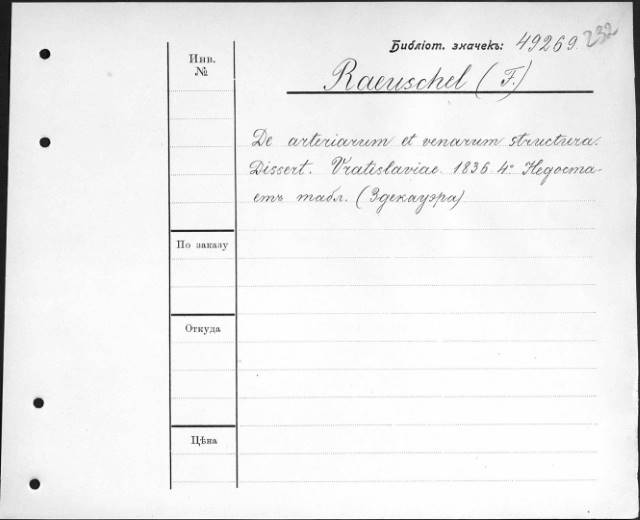 Библіот. значекъ: 49269. 232
Инв.
№
Raeuschel (F.)
De arteriarum et venarum structura.
Dissert. Vratislaviae. 1836. 4° Недоста-
етъ табл. (Здекауэра)
По заказу
Откуда
Цѣна